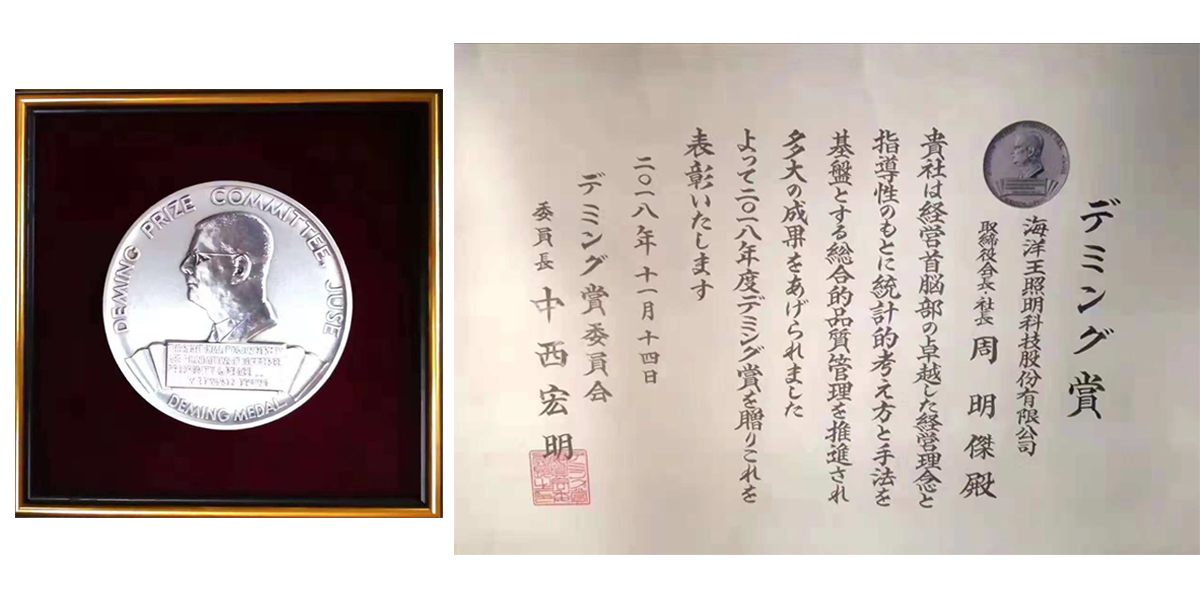 DEMING PRIZE COMMITTEE, JUSE
DEMING MEDAL
デミング賞
海洋王照明科技股份有限公司
取締役会長・社長 周明傑殿
貴社は経営首脳部の卓越した経営理念と
指導性のもとに統計的考え方と手法を
基盤とする総合的品質管理を推進され
多大の成果をあげられました
よって二〇一八年度デミング賞を贈りこれを
表彰いたします
二〇一八年十一月十四日
デミング賞委員会
委員長 中西宏明